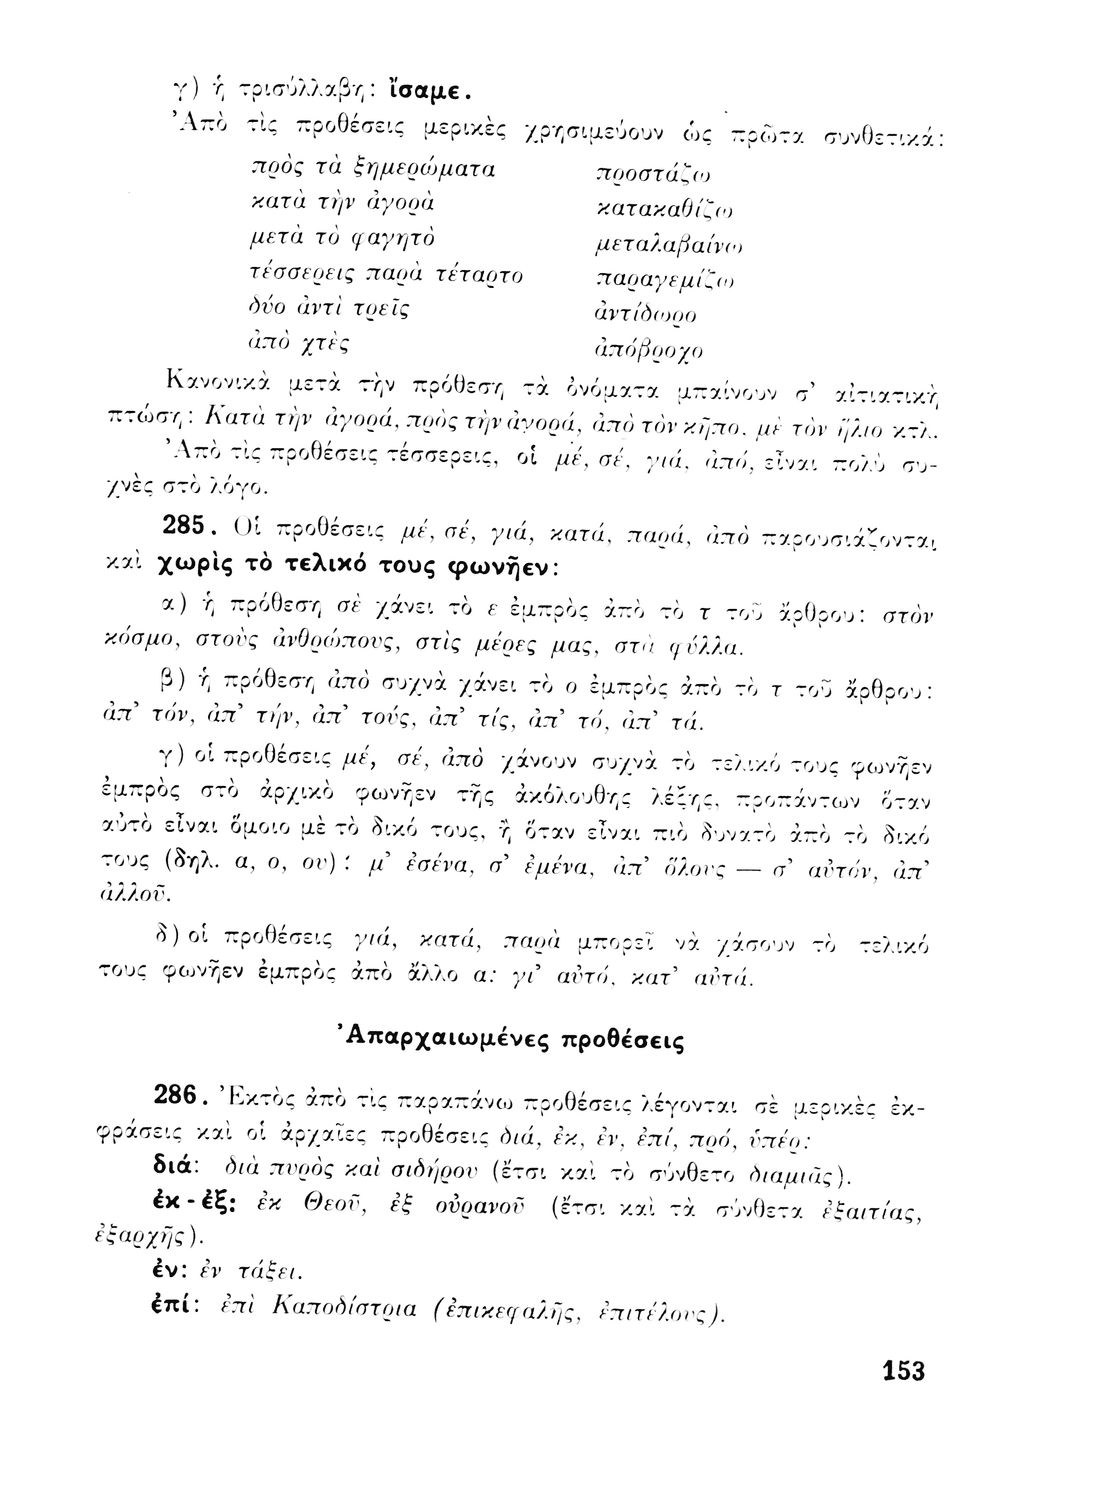 γ) ἡ τρισύλλαβη: ἴσαμε.
Ἀπὸ τὶς προθέσεις μερικὲς χρησιμεύουν ὡς πρῶτα συνθετικά:
πρὸς τὰ ξημερώματα προστάζω
κατὰ τὴν ἀγορὰ κατακαθίζω
μετὰ τὸ φαγητὸ μεταλαβαίνω
τέσσερεις παρὰ τέταρτο παραγεμίζω
δύο ἀντὶ τρεῖς ἀντίδωρο
ἀπὸ χτὲς ἀπόβροχο
Κανονικὰ μετὰ τὴν πρόθεση τὰ ὀνόματα μπαίνουν σ’ αἰτιατικὴ
πτώση: Κατὰ τὴν ἀγορά, πρὸς τὴν ἀγορά, ἀπὸ τὸν κῆπο. μὲ τὸν ἥλιο κτλ.
Ἀπὸ τὶς προθέσεις τέσσερεις, οἱ μέ, σέ, γιά, ἀπό, εἶναι πολὺ συ-
χνὲς στὸ λόγο.
285. Οἱ προθέσεις μέ, σέ, γιά, κατά, παρά, ἀπὸ παρουσιάζονται
καὶ χωρὶς τὸ τελικό τους φωνῆεν:
α) ἡ πρόθεση σὲ χάνει τὸ ε ἐμπρὸς ἀπὸ τὸ τ τοῦ ἄρθρου: στὸν
κόσμο, στοὺς ἀνθρώπους, στὶς μέρες μας, στὰ φύλλα.
β) ἡ πρόθεση ἀπὸ συχνὰ χάνει τὸ ο ἐμπρὸς ἀπὸ τὸ τ τοῦ ἄρθρου:
ἀπ’ τόν, ἀπ’ τήν, ἀπ’ τούς, ἀπ’ τίς, ἀπ’ τό, ἀπ’ τά.
γ) οἱ προθέσεις μέ, σέ, ἀπὸ χάνουν συχνὰ τὸ τελικό τους φωνῆεν
ἐμπρὸς στὸ ἀρχικὸ φωνῆεν τῆς ἀκόλουθης λέξης, προπάντων ὅταν
αὐτὸ εἶναι ὅμοιο μὲ τὸ δικό τους, ἢ ὅταν εἶναι πιὸ δυνατὸ ἀπὸ τὸ δικό
τους (δηλ. α, ο, ου): μ’ ἐσένα, σ’ ἐμένα, ἀπ’ ὅλους — σ’ αὐτόν, ἀπ’
ἀλλοῦ.
δ) οἱ προθέσεις γιά, κατά, παρὰ μπορεῖ νὰ χάσουν τὸ τελικό
τους φωνῆεν ἐμπρὸς ἀπὸ ἄλλο α: γι’ αὐτό, κατ’ αὐτά.
Ἀπαρχαιωμένες προθέσεις
286. Ἐκτὸς ἀπὸ τὶς παραπάνω προθέσεις λέγονται σὲ μερικὲς ἐκ-
φράσεις καὶ οἱ ἀρχαῖες προθέσεις διά, ἐκ, ἐν, ἐπί, πρό, ὑπέρ:
διά: διὰ πυρὸς καὶ σιδήρου (ἔτσι καὶ τὸ σύνθετο διαμιᾶς).
ἐκ - ἐξ: ἐκ Θεοῦ, ἐξ οὐρανοῦ (ἔτσι καὶ τὰ σύνθετα ἐξαιτίας,
ἐξαρχῆς).
ἐν: ἐν τάξει.
ἐπί: ἐπὶ Καποδίστρια (ἐπικεφαλῆς, ἐπιτέλους).
153